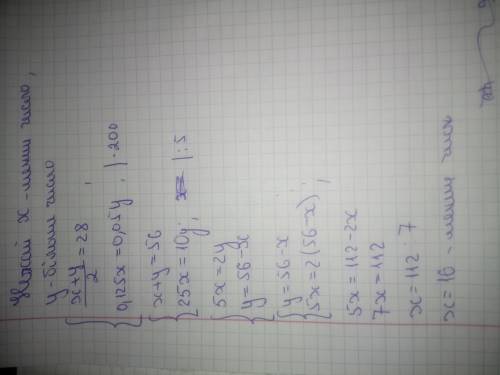 Нехай x - менше число,
y - більше число
{ x+y/2 = 28 ,
0,125x = 0,05y , | ·200
{ x+y = 56
25x = 10y ; | :5
{ 5x = 2y
y = 56 - x
{ y = 56 - x
5x = 2(56-x) ;
5x = 112 - 2x
7x = 112
x = 112 : 7
x = 16 - менше число